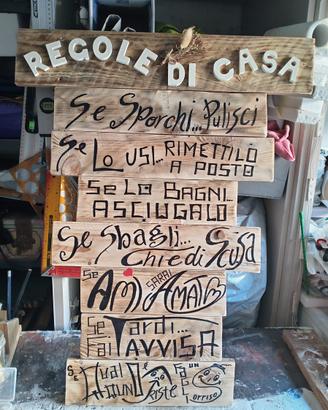 REGOLE DI CASA
Se Sporchi... Pulisci
Se Lo USI... RIMETTILO
A POSTO
Se Lo BAGNI...
ASCIUGALO
Se Sbagli...
chiedi Scusa
Se AMi SARAI AMATO
Se Tardi...
Fai AVVISA
Se
Triste
Sorriso